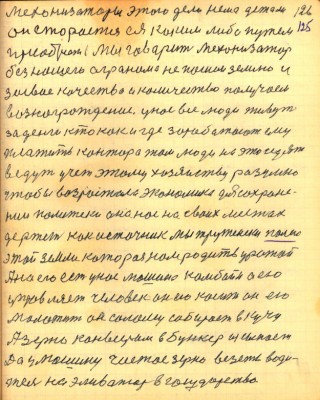 Механизаторы этого дело нена детали 126
он старается ся каким либо путём 125
приоброт мы гаварит механизатор
без нашего огранома не пашем землю и
за вне качество и количество получаем
вазногрождение. у нас все люди живут
за деньги кто как и где зарабатают ему
платить кантора там люди на это сидят
ведут учет этому хозяйству разному
чтобы возрастала экономика для сохране-
нии политеки она нас на своих местах
держет как источник мы труженки поляю
этой земли котора нам родить урожай
Ана его ест у нас машина камбайн а ею
управляет человек он его касит он его
молотит он салому сабирает в кучу
А зерно канвеерам в бункер и сыпает
Да у машину чистае зерно везеть води-
тел на эливатар в государство